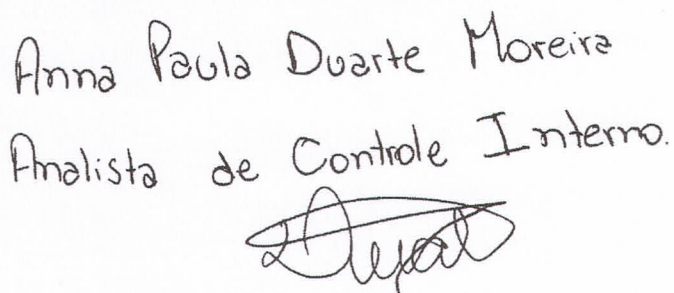 Anna Paula Duarte Moreira
Analista de Controle Interno.